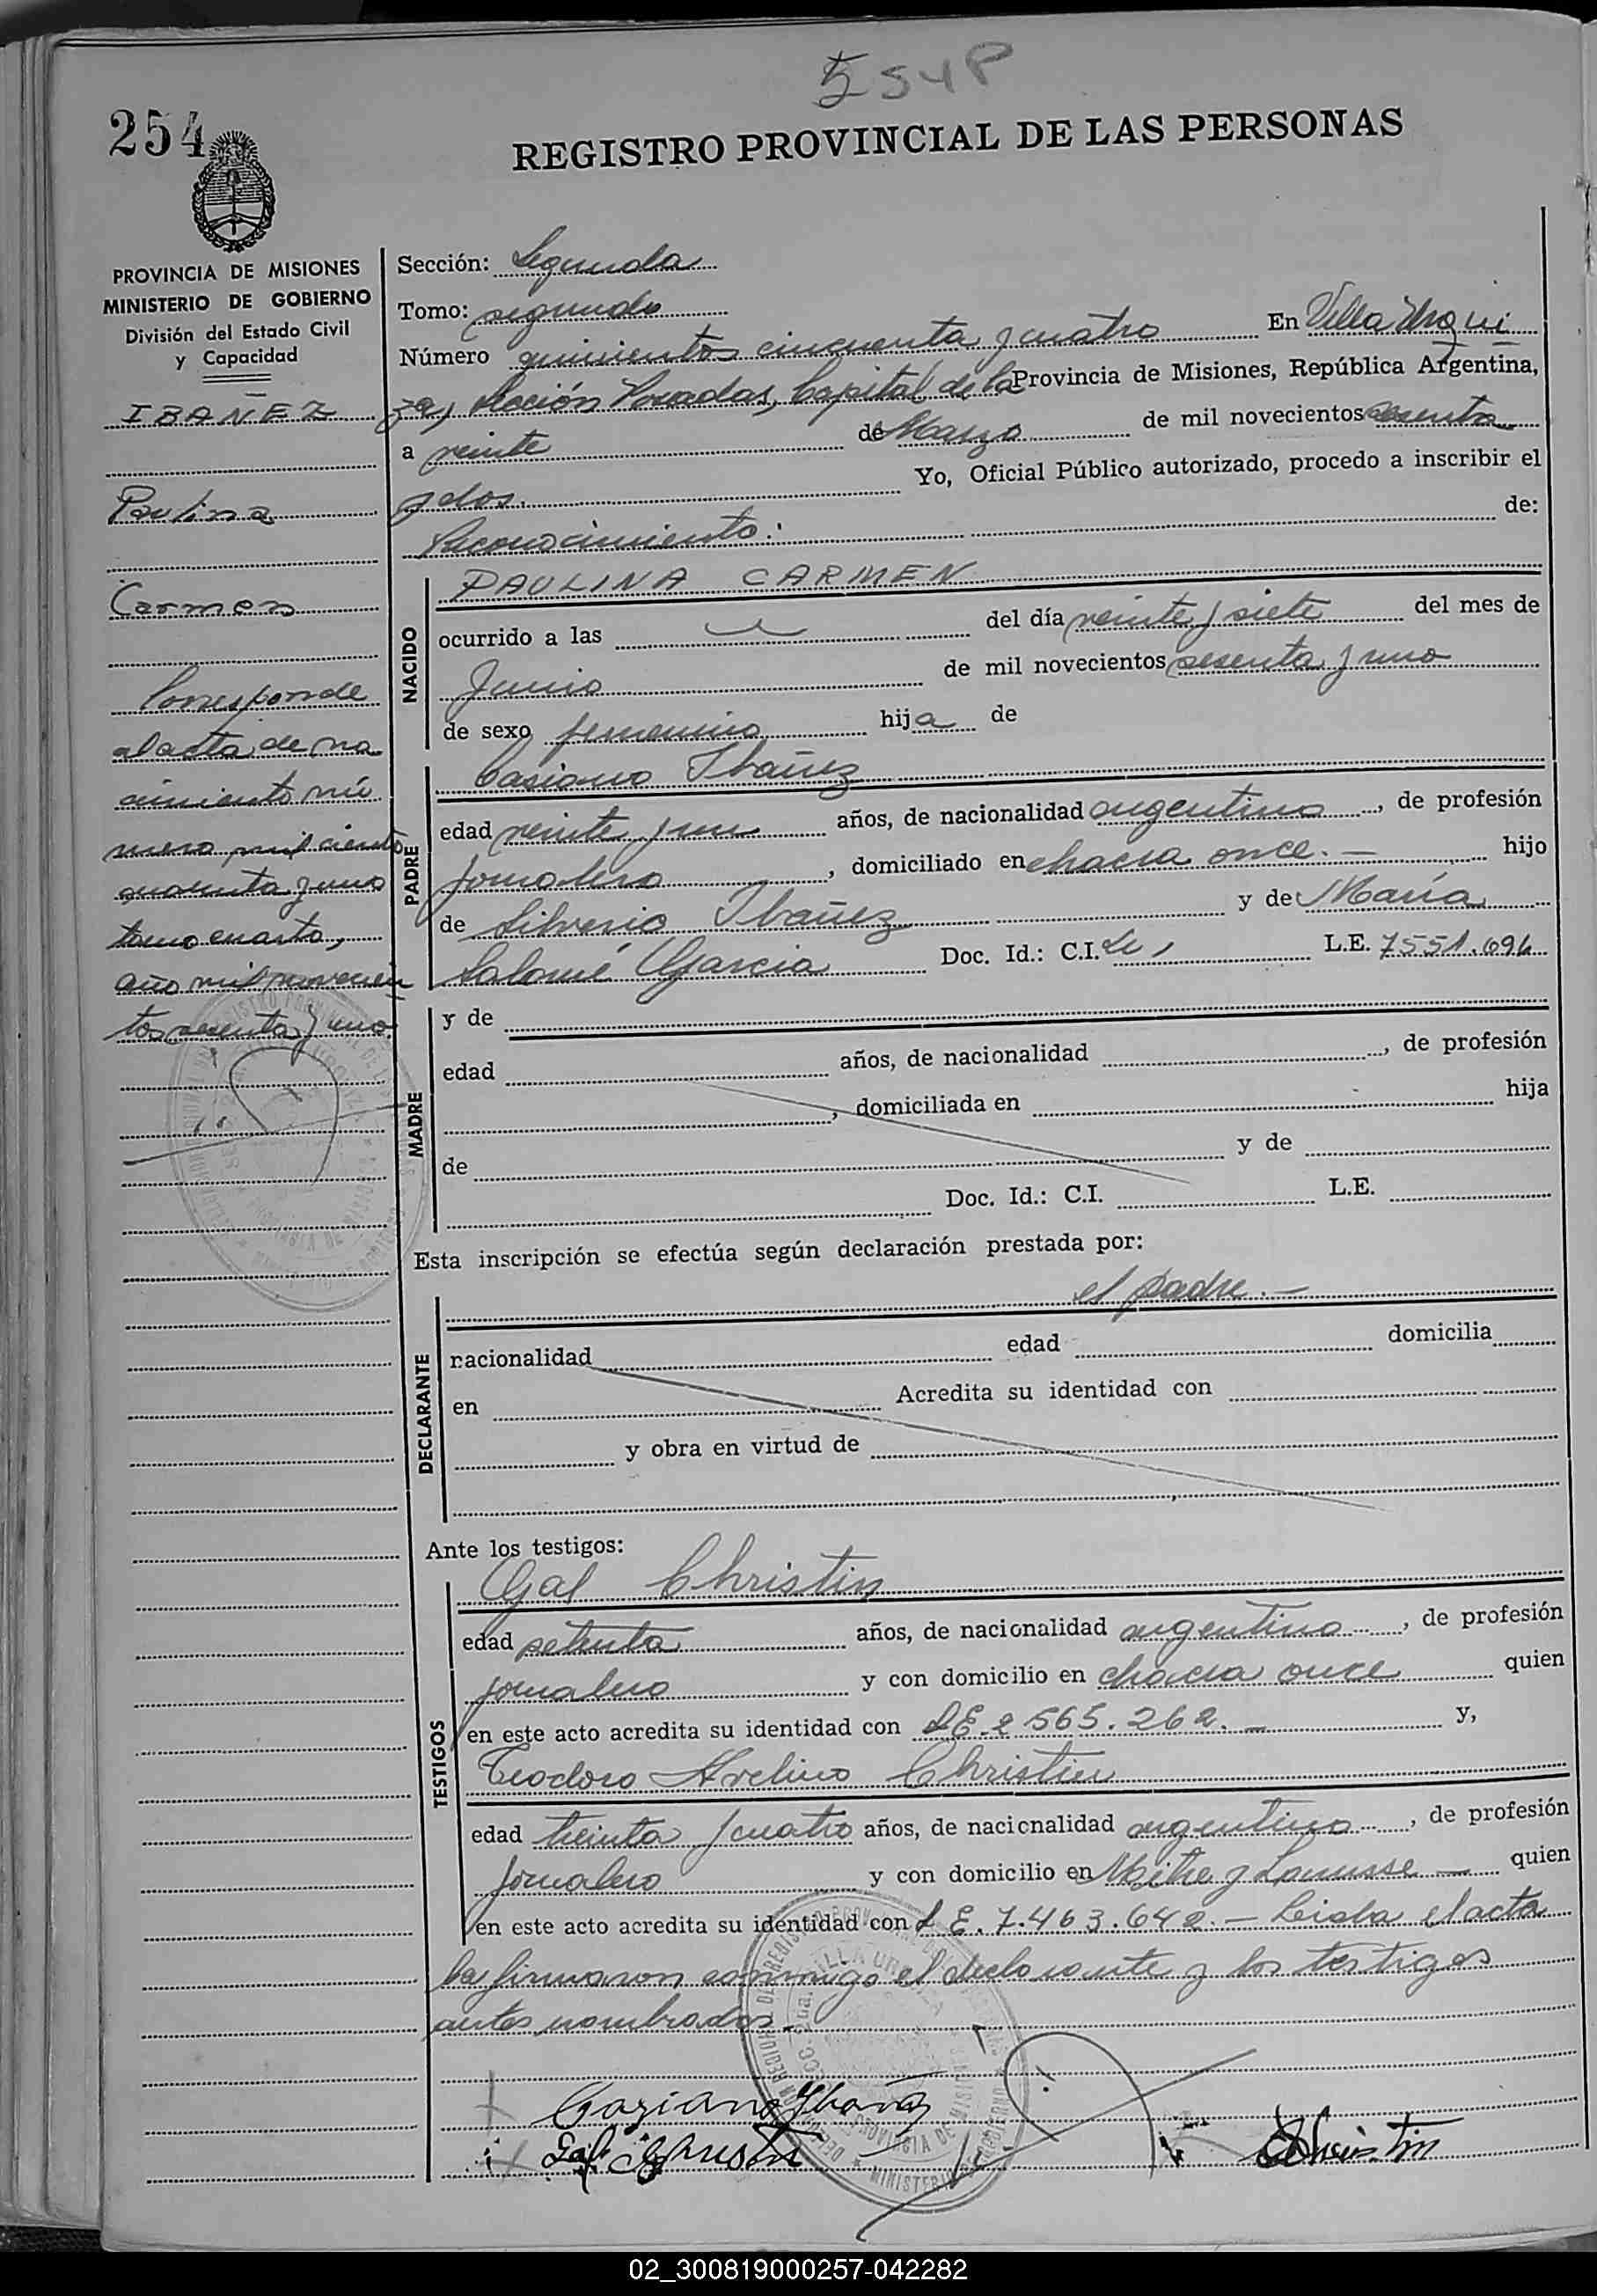 554P
254
REGISTRO PROVINCIAL DE LAS PERSONAS
PROVINCIA DE MISIONES
MINISTERIO DE GOBIERNO
División del Estado Civil
y Capacidad
IBAÑEZ
Paulina
Carmen
Corresponde
al acta de na
cimiento nú
mero mil ciento
cuarenta y uno
tomo cuarto,
año mil novecien
tos sesenta y uno.
Sección: Segunda
Tomo: segundo
Número quinientos cincuenta y cuatro En Villa Urqui
za, Sección Posadas, Capital de la Provincia de Misiones, República Argentina,
a veinte de Marzo de mil novecientos sesenta
y dos. Yo, Oficial Público autorizado, procedo a inscribir el
Reconocimiento: de:
NACIDO
PAULINA CARMEN
ocurrido a las del día veinte y siete del mes de
Junio de mil novecientos sesenta y uno
de sexo femenino hija de
PADRE
Casiano Ibañez
edad veinte y un años, de nacionalidad argentino, de profesión
jornalero, domiciliado en chacra once. — hijo
de Silverio Ibañez y de María
Salomé Garcia Doc. Id.: C.I. L.E. 7551.694
MADRE
y de
edad años, de nacionalidad , de profesión
, domiciliada en hija
de y de
Doc. Id.: C.I. L.E.
Esta inscripción se efectúa según declaración prestada por:
el padre. —
DECLARANTE
nacionalidad edad domicilia
en Acredita su identidad con
y obra en virtud de
Ante los testigos:
TESTIGOS
Gal Christin
edad setenta años, de nacionalidad argentino, de profesión
jornalero y con domicilio en chacra once quien
en este acto acredita su identidad con LE. 2 565.262. — y,
Teodoro Avelino Christin
edad treinta y cuatro años, de nacionalidad argentino, de profesión
jornalero y con domicilio en Mitre y Lanusse — quien
en este acto acredita su identidad con L E. 7.463.642. — Leida el acta
la firmaron conmigo el declarante y los testigos
antes nombrados.
Casiano Ibañez
Gal Christin
Christin
02_300819000257-042282